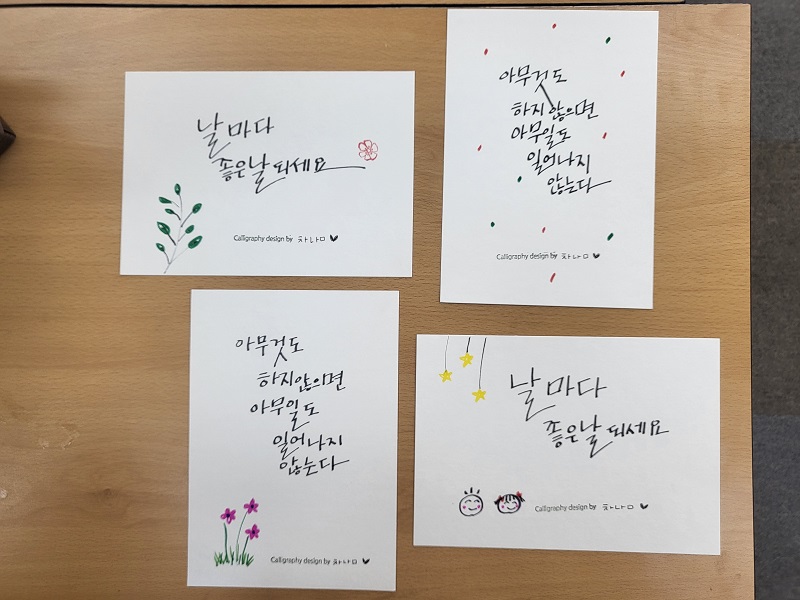 날마다
좋은날 되세요
Calligraphy design by 차나모
아무것도
하지않으면
아무일도
일어나지
않는다
Calligraphy design by 차나모
아무것도
하지않으면
아무일도
일어나지
않는다
Calligraphy design by 차나모
날마다
좋은날 되세요
Calligraphy design by 차나모